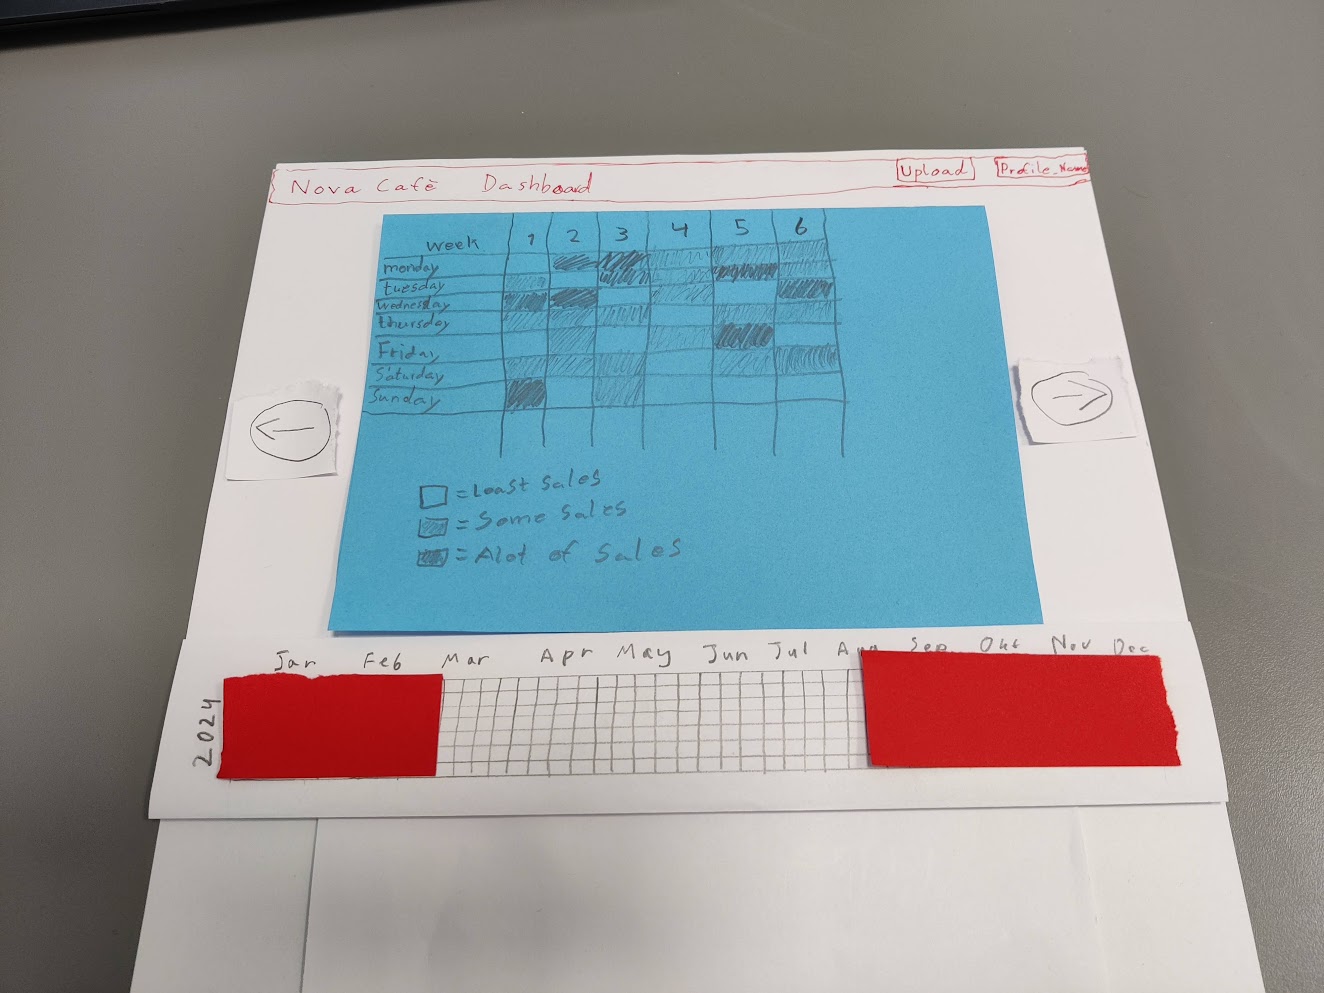 Nova Cafē Dashboard Upload Profile_Name
week 1 2 3 4 5 6
monday
tuesday
wednesday
thursday
Friday
Saturday
Sunday
= Least sales
= Some sales
= Alot of Sales
Jar Feb Mar Apr May Jun Jul Aug Sep Okt Nov Dec
2024